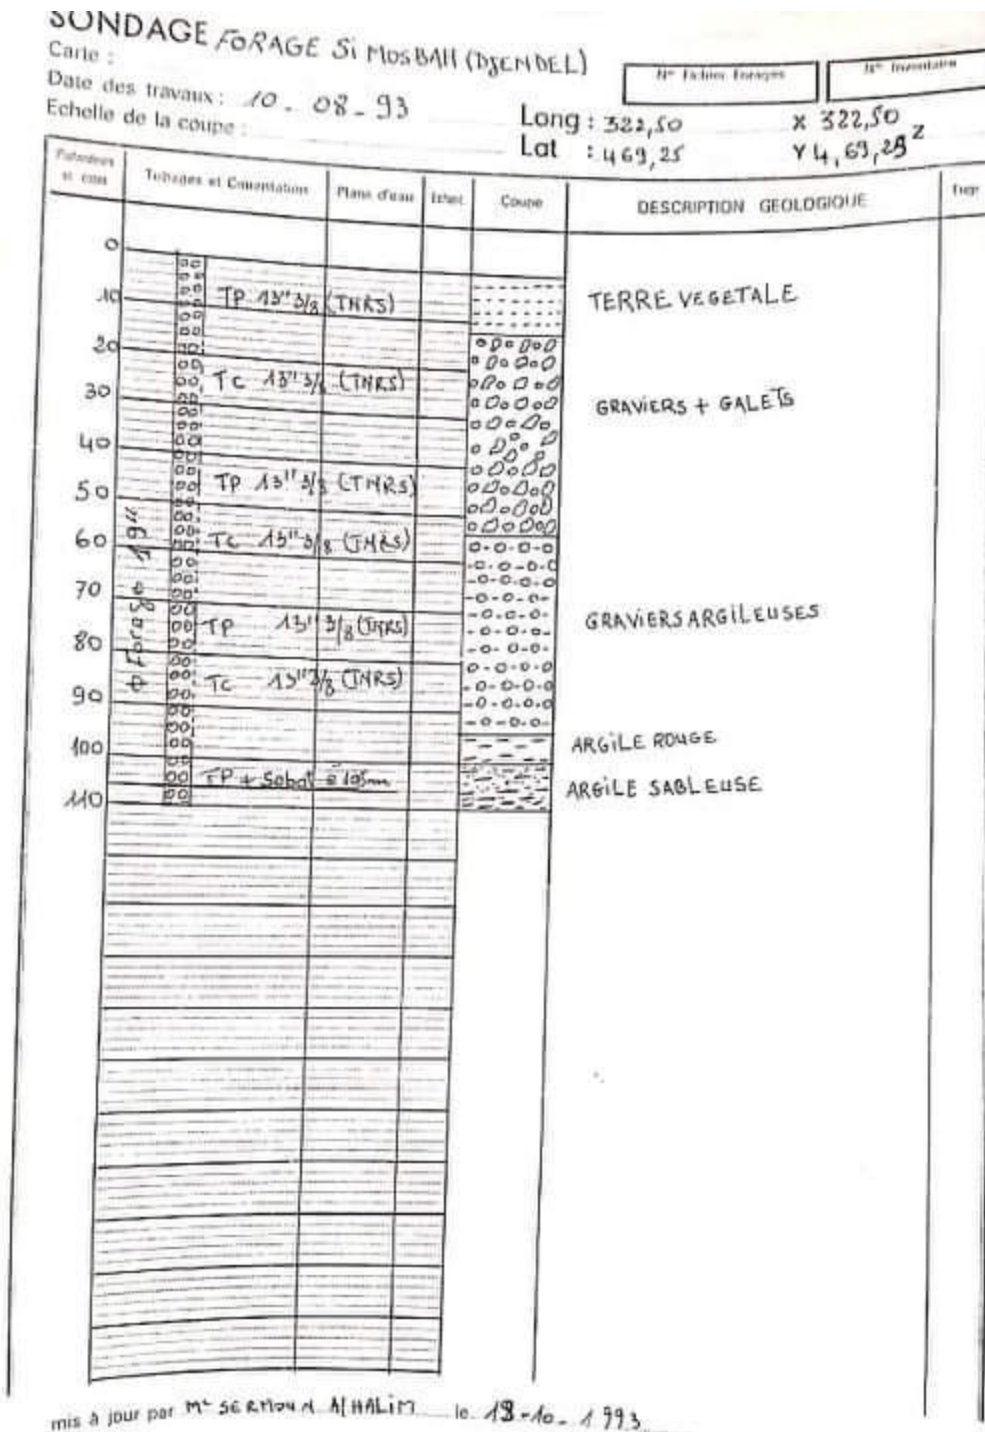 SONDAGE FORAGE Si MOSBAH (DJENDEL)
Carte :
Date des travaux : 10 - 08 - 93
Echelle de la coupe :
N° Fichier Forages
N° Inventaire
Long : 322,50 X 322,50
Lat : 469,25 Y 4,69,25 Z
Tubages et Cimentation
Plans d'eau
Echot.
Coupe
DESCRIPTION GEOLOGIQUE
0
10 TP 13" 3/8 (TNRS) TERRE VEGETALE
20
30 TC 13" 3/8 (TNRS) GRAVIERS + GALETS
40
50 TP 13" 3/8 (TNRS)
60 TC 13" 3/8 (TNRS)
70
80 TP 13" 3/8 (TNRS) GRAVIERS ARGILEUSES
90 TC 13" 3/8 (TNRS)
100 ARGILE ROUGE
110 TP + Sabot à 105m ARGILE SABLEUSE
Φ Forage 19"
mis à jour par Mr SERMOUN A/HALIM le 18-10-1993